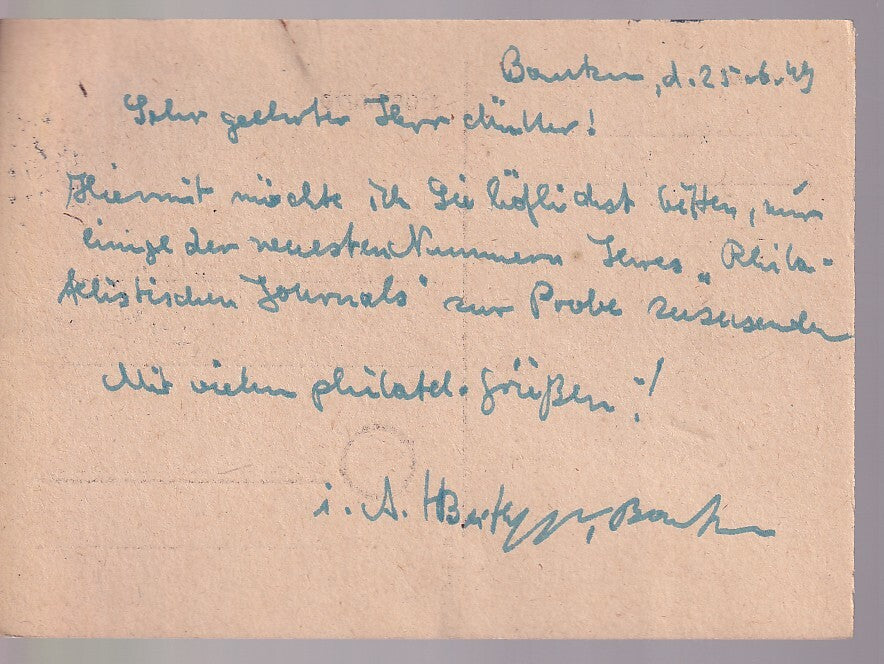 Bautzen, d. 25.6.49
Sehr geehrter Herr Müller!
Hiermit möchte ich Sie höflichst bitten, mir
einige der neuesten Nummern Ihres „Phila-
telistischen Journals" zur Probe zuzusenden
Mit vielen philatel. Grüßen!
i. A. Bautzen